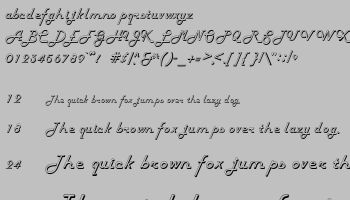 abcdefghijklmno pqrstuvwxyz
ABCDEFGHIJK LMNOPQRSTUVWX
0123456789
12 The quick brown fox jumps over the lazy dog.
18 The quick brown fox jumps over the lazy dog.
24 The quick brown fox jumps over th